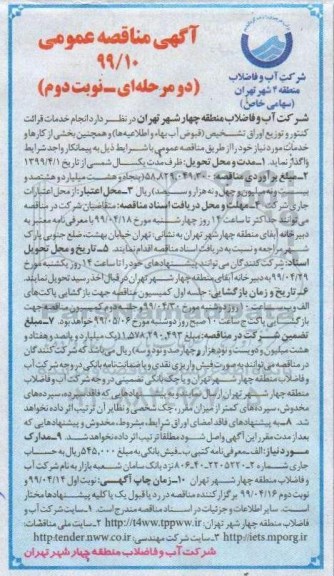 آگهی مناقصه عمومی
۹۹/۱۰
(دو مرحله‌ای _نوبت دوم)
شرکت آب و فاضلاب
منطقه ۴ شهر تهران
(سهامی خاص)
شرکت آب و فاضلاب منطقه چهار شهر تهران در نظر دارد انجام خدمات قرائت
کنتور و توزیع اوراق تشخیص (قبوض آب بهاء و اطلاعیه‌ها) و همچنین بخشی از کارها و
خدمات مورد نیاز خود را از طریق مناقصه عمومی با شرایط ذیل به پیمانکار واجد شرایط
واگذار نماید. ۱_مدت و محل تحویل: ظرف مدت یکسال شمسی از تاریخ ۱۳۹۹/۴/۱
۲_مبلغ برآوردی مناقصه:
ریال ۳_محل اعتبار: از محل اعتبارات
جاری شرکت ۴_مهلت و محل دریافت اسناد مناقصه: متقاضیان شرکت در مناقصه
می‌توانند حداکثر تا ساعت ۱۴ روز چهارشنبه مورخ ۹۹/۰۴/۱۸ با معرفی نامه معتبر به
دبیرخانه آبفای منطقه چهار شهر تهران به نشانی: تهران خیابان بهشت، ضلع جنوبی پارک
شهر مراجعه و نسبت به دریافت اسناد مناقصه اقدام نمایند. ۵_تاریخ و محل تحویل
اسناد: شرکت کنندگان می توانند پیشنهادهای خود را تا ساعت ۱۴ روز یکشنبه مورخ
۹۹/۰۴/۲۹ به دبیرخانه آبفای منطقه چهار شهر تهران در قبال اخذ رسید تحویل نمایند.
۶_تاریخ و زمان بازگشایی: جلسه اول کمیسیون مناقصه جهت بازگشایی پاکت‌های
بازگشایی پاکت ج ساعت ۱۰ صبح روز دوشنبه مورخ ۹۹/۰۵/۰۶ خواهد بود. ۷_مبلغ
تضمین شرکت در مناقصه: مبلغ ۱۱,۵۷۸,۲۹۰,۴۹۳
ریال می‌باشد که شرکت کنندگان
در مناقصه می‌توانند به صورت فیش واریزی نقدی و یا ضمانت نامه بانکی در وجه شرکت آب
و فاضلاب منطقه چهار شهر تهران و یا چک بانکی تضمینی در وجه شرکت آب و فاضلاب
مخدوش، سپرده‌های کمتر از میزان مقرر، چک شخصی و نظایر آن ترتیب اثر داده نخواهد
شد. ۸_به پیشنهادهای فاقد امضای اوراق شرایط، مشروط، مخدوش و پیشنهادهایی که
بعد از مدت مقرر این آگهی واصل شود مطلقاً ترتیب اثر داده نخواهد شد. ۹_مدارک
مورد نیاز: الف_معرفی نامه کتبی ب_فیش بانکی به مبلغ ۵۴۵,۰۰۰ ریال به حساب
آب و فاضلاب منطقه چهار شهر تهران ۱۰_زمان چاپ آگهی: نوبت اول ۹۹/۰۴/۱۴ و
نوبت دوم ۹۹/۰۴/۱۶ برگزار کننده مناقصه در رد یا قبول یک یا کلیه پیشنهادها مختار
است. سایر اطلاعات و جزئیات در اسناد مناقصه مندرج است. ۱_سایت شرکت آب و
فاضلاب منطقه چهار شهر تهران: http://t4ww.tppww.ir ۲_سایت ملی مناقصات:
http://iets.mporg.ir ۳_سایت شرکت مهندسی: http:tender.nww.co.ir
شرکت آب و فاضلاب منطقه چهار شهر تهران